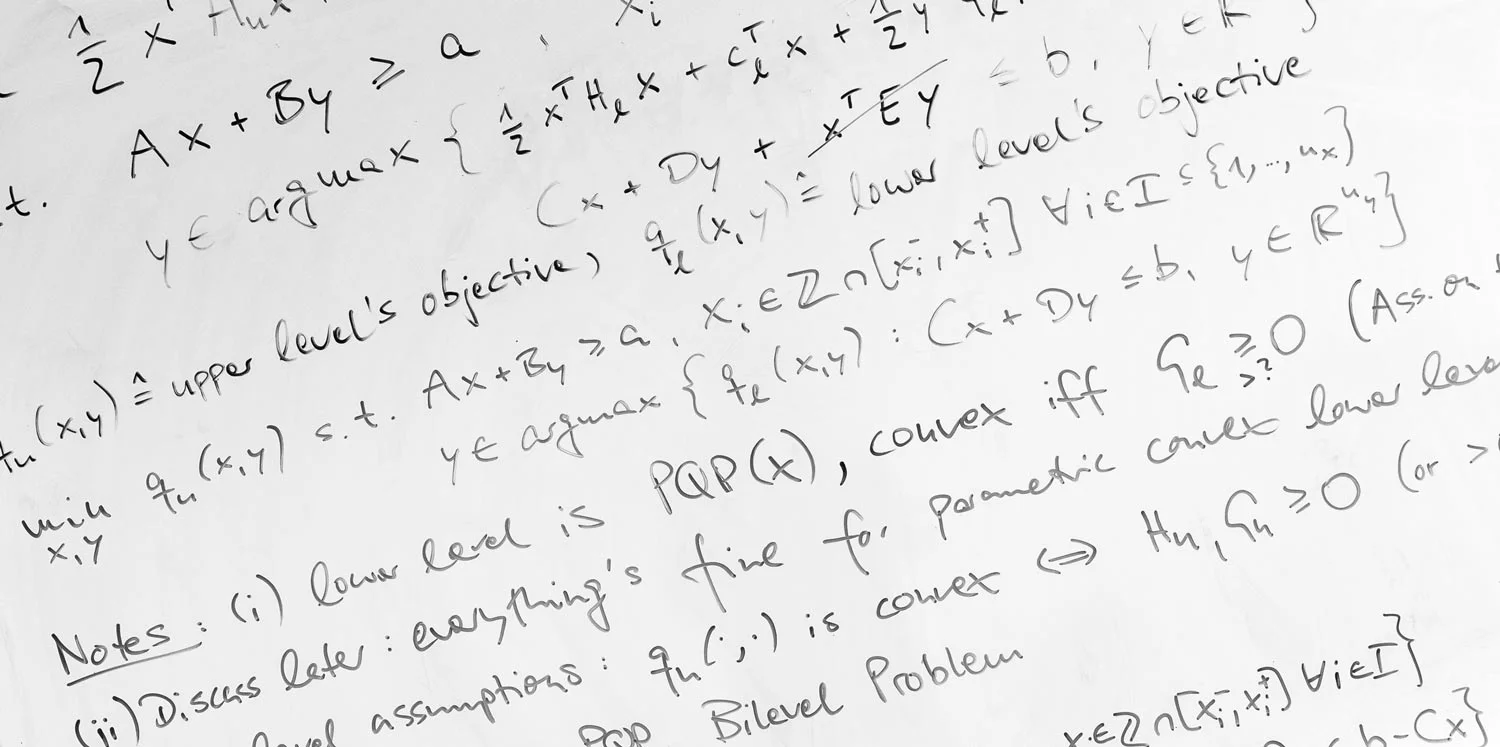 1/2 x^T H_u x
t. Ax + By ≥ a , x_i
y ∈ argmax { 1/2 x^T H_l x + c_l^T x + 1/2 y
Cx + Dy + x^T E y ≤ b, y ∈ ℝ }
q_u(x,y) ≙ upper level's objective, q_l(x,y) ≙ lower level's objective
min x,y q_u(x,y) s.t. Ax + By ≥ a, x_i ∈ ℤ ∩ [x_i^-, x_i^+] ∀ i ∈ I ⊆ {1,...,n_x}
y ∈ argmax { q_l(x,y) : Cx + Dy ≤ b, y ∈ ℝ^{n_y} }
Notes: (i) lower level is PQP(x), convex iff G_l ≥ 0 >? (Ass. on
(ii) Discuss later: everything's fine for parametric convex lower level
level assumptions: q_u(·,·) is convex ⇔ H_u, G_u ≥ 0 (or >
PQP Bilevel Problem
x_i ∈ ℤ ∩ [x_i^-, x_i^+] ∀ i ∈ I }
b - Cx }